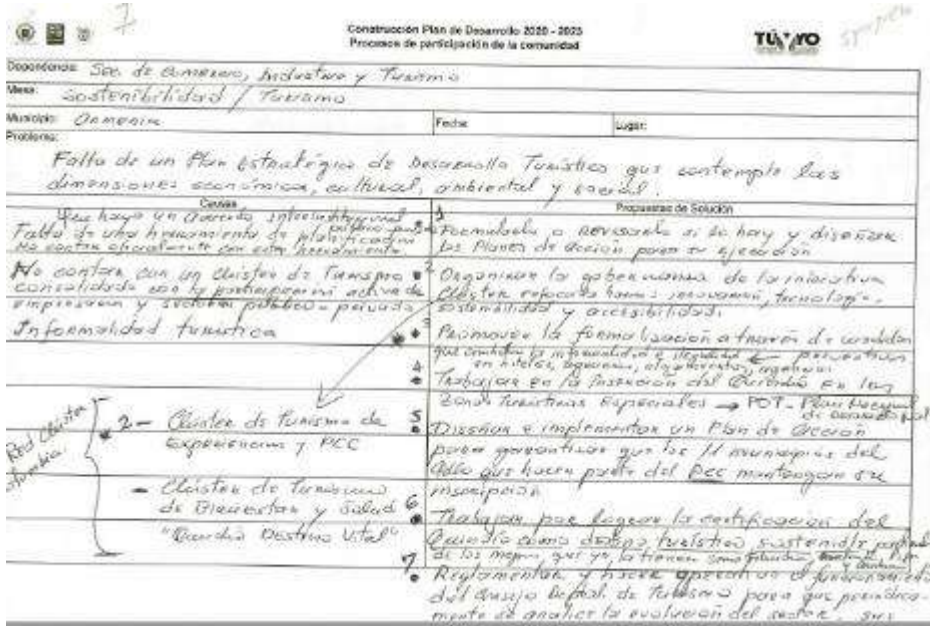 7
Construcción Plan de Desarrollo 2020 - 2023
Procesos de participación de la comunidad
TÚ Y YO
Dependencia: Sec. de Comercio, Industria y Turismo
Mesa: Sostenibilidad / Turismo
Municipio: Armenia
Fecha:
Lugar:
Problema:
Falta de un Plan Estratégico de Desarrollo Turístico que contemple las
dimensiones económica, cultural, ambiental y social.
Causas
Que haya un acuerdo interinstitucional
Falta de una herramienta de planificación
No contar oficialmente con esta herramienta
No contar con un clúster de Turismo
consolidado con la participación activa de
empresarios y sectores público - privado
Informalidad turística
2 - Clúster de Turismo de
Experiencias y PCC
- Clúster de Turismo
de Bienestar y Salud
"Quindío Destino Vital"
Red Clúster
Colombia
Propuestas de Solución
1
Formularlo o revisarlo si lo hay y diseñar
los Planes de acción para su ejecución
2 Organizar la gobernanza de la iniciativa
Clúster enfocada hacia innovación, tecnología,
sostenibilidad y accesibilidad.
3 Promover la formalización a través de
que combatan la informalidad e ilegalidad
en hoteles, agencias, alojamientos,
4 Trabajar en la inserción del Quindío en las
Zonas Turísticas Especiales → POT - Plan Nacional
de Desarrollo
5 Diseñar e implementar un Plan de acción
para garantizar que los 11 municipios del
Qdío que hacen parte del PCC mantengan su
inscripción
6 Trabajar por lograr la certificación del
Quindío como destino turístico sostenible
de los mpios que ya la tienen como
7. Reglamentar y hacer operativo el funcionamiento
del Consejo Deptal de Turismo para que periódica-
mente se analice la evolución del sector, sus